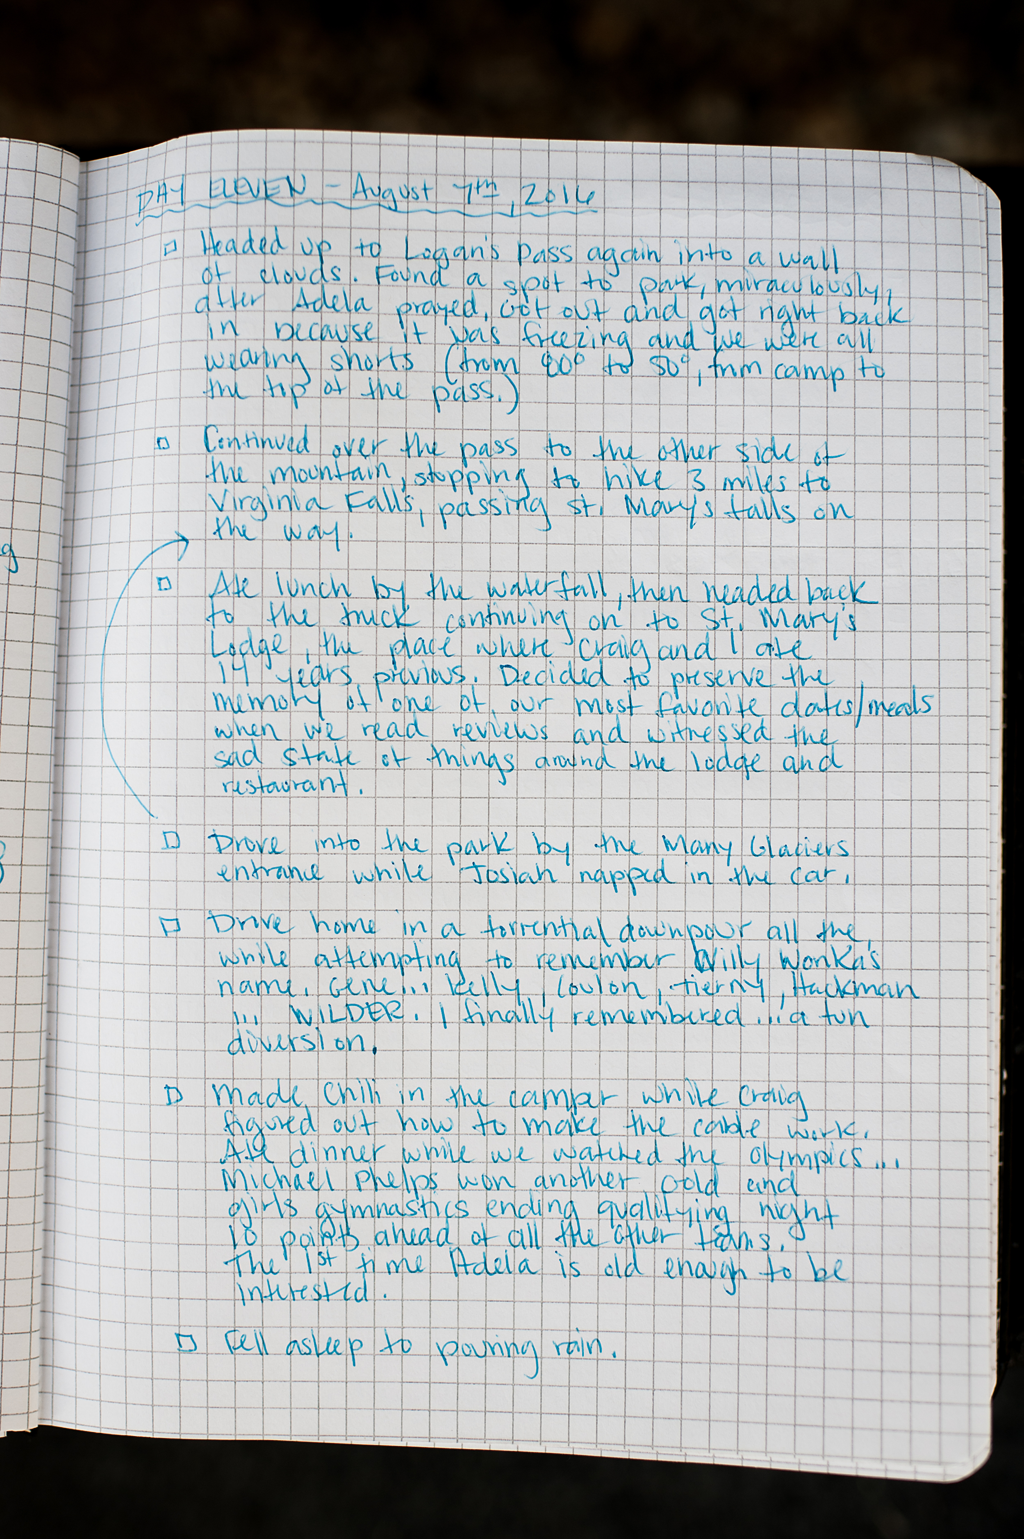 DAY ELEVEN - August 7th, 2016
Headed up to Logan's Pass again into a wall
of clouds. Found a spot to park, miraculously,
after Adela prayed, Got out and got right back
in because it was freezing and we were all
wearing shorts (from 80° to 50°, from camp to
the tip of the pass.)
Continued over the pass to the other side of
the mountain, stopping to hike 3 miles to
Virginia Falls, passing St. Mary's falls on
the way.
g
Ate lunch by the waterfall, then headed back
to the truck continuing on to St. Mary's
Lodge, the place where Craig and I ate
14 years previous. Decided to preserve the
memory of one of our most favorite dates/meals
when we read reviews and witnessed the
sad state of things around the lodge and
restaurant.
Drove into the park by the Many Glaciers
entrance while Josiah napped in the car.
Drive home in a torrential downpour all the
while attempting to remember Willy Wonka's
name. Gene... Kelly, Coulon, tierny, Hackman
... WILDER. I finally remembered...a fun
diversion.
Made Chili in the camper while Craig
figured out how to make the cable work.
Ate dinner while we watched the Olympics...
Michael Phelps won another gold and
girls gymnastics ending qualifying night
10 points ahead of all the other teams.
The 1st time Adela is old enough to be
interested.
Fell asleep to pouring rain.